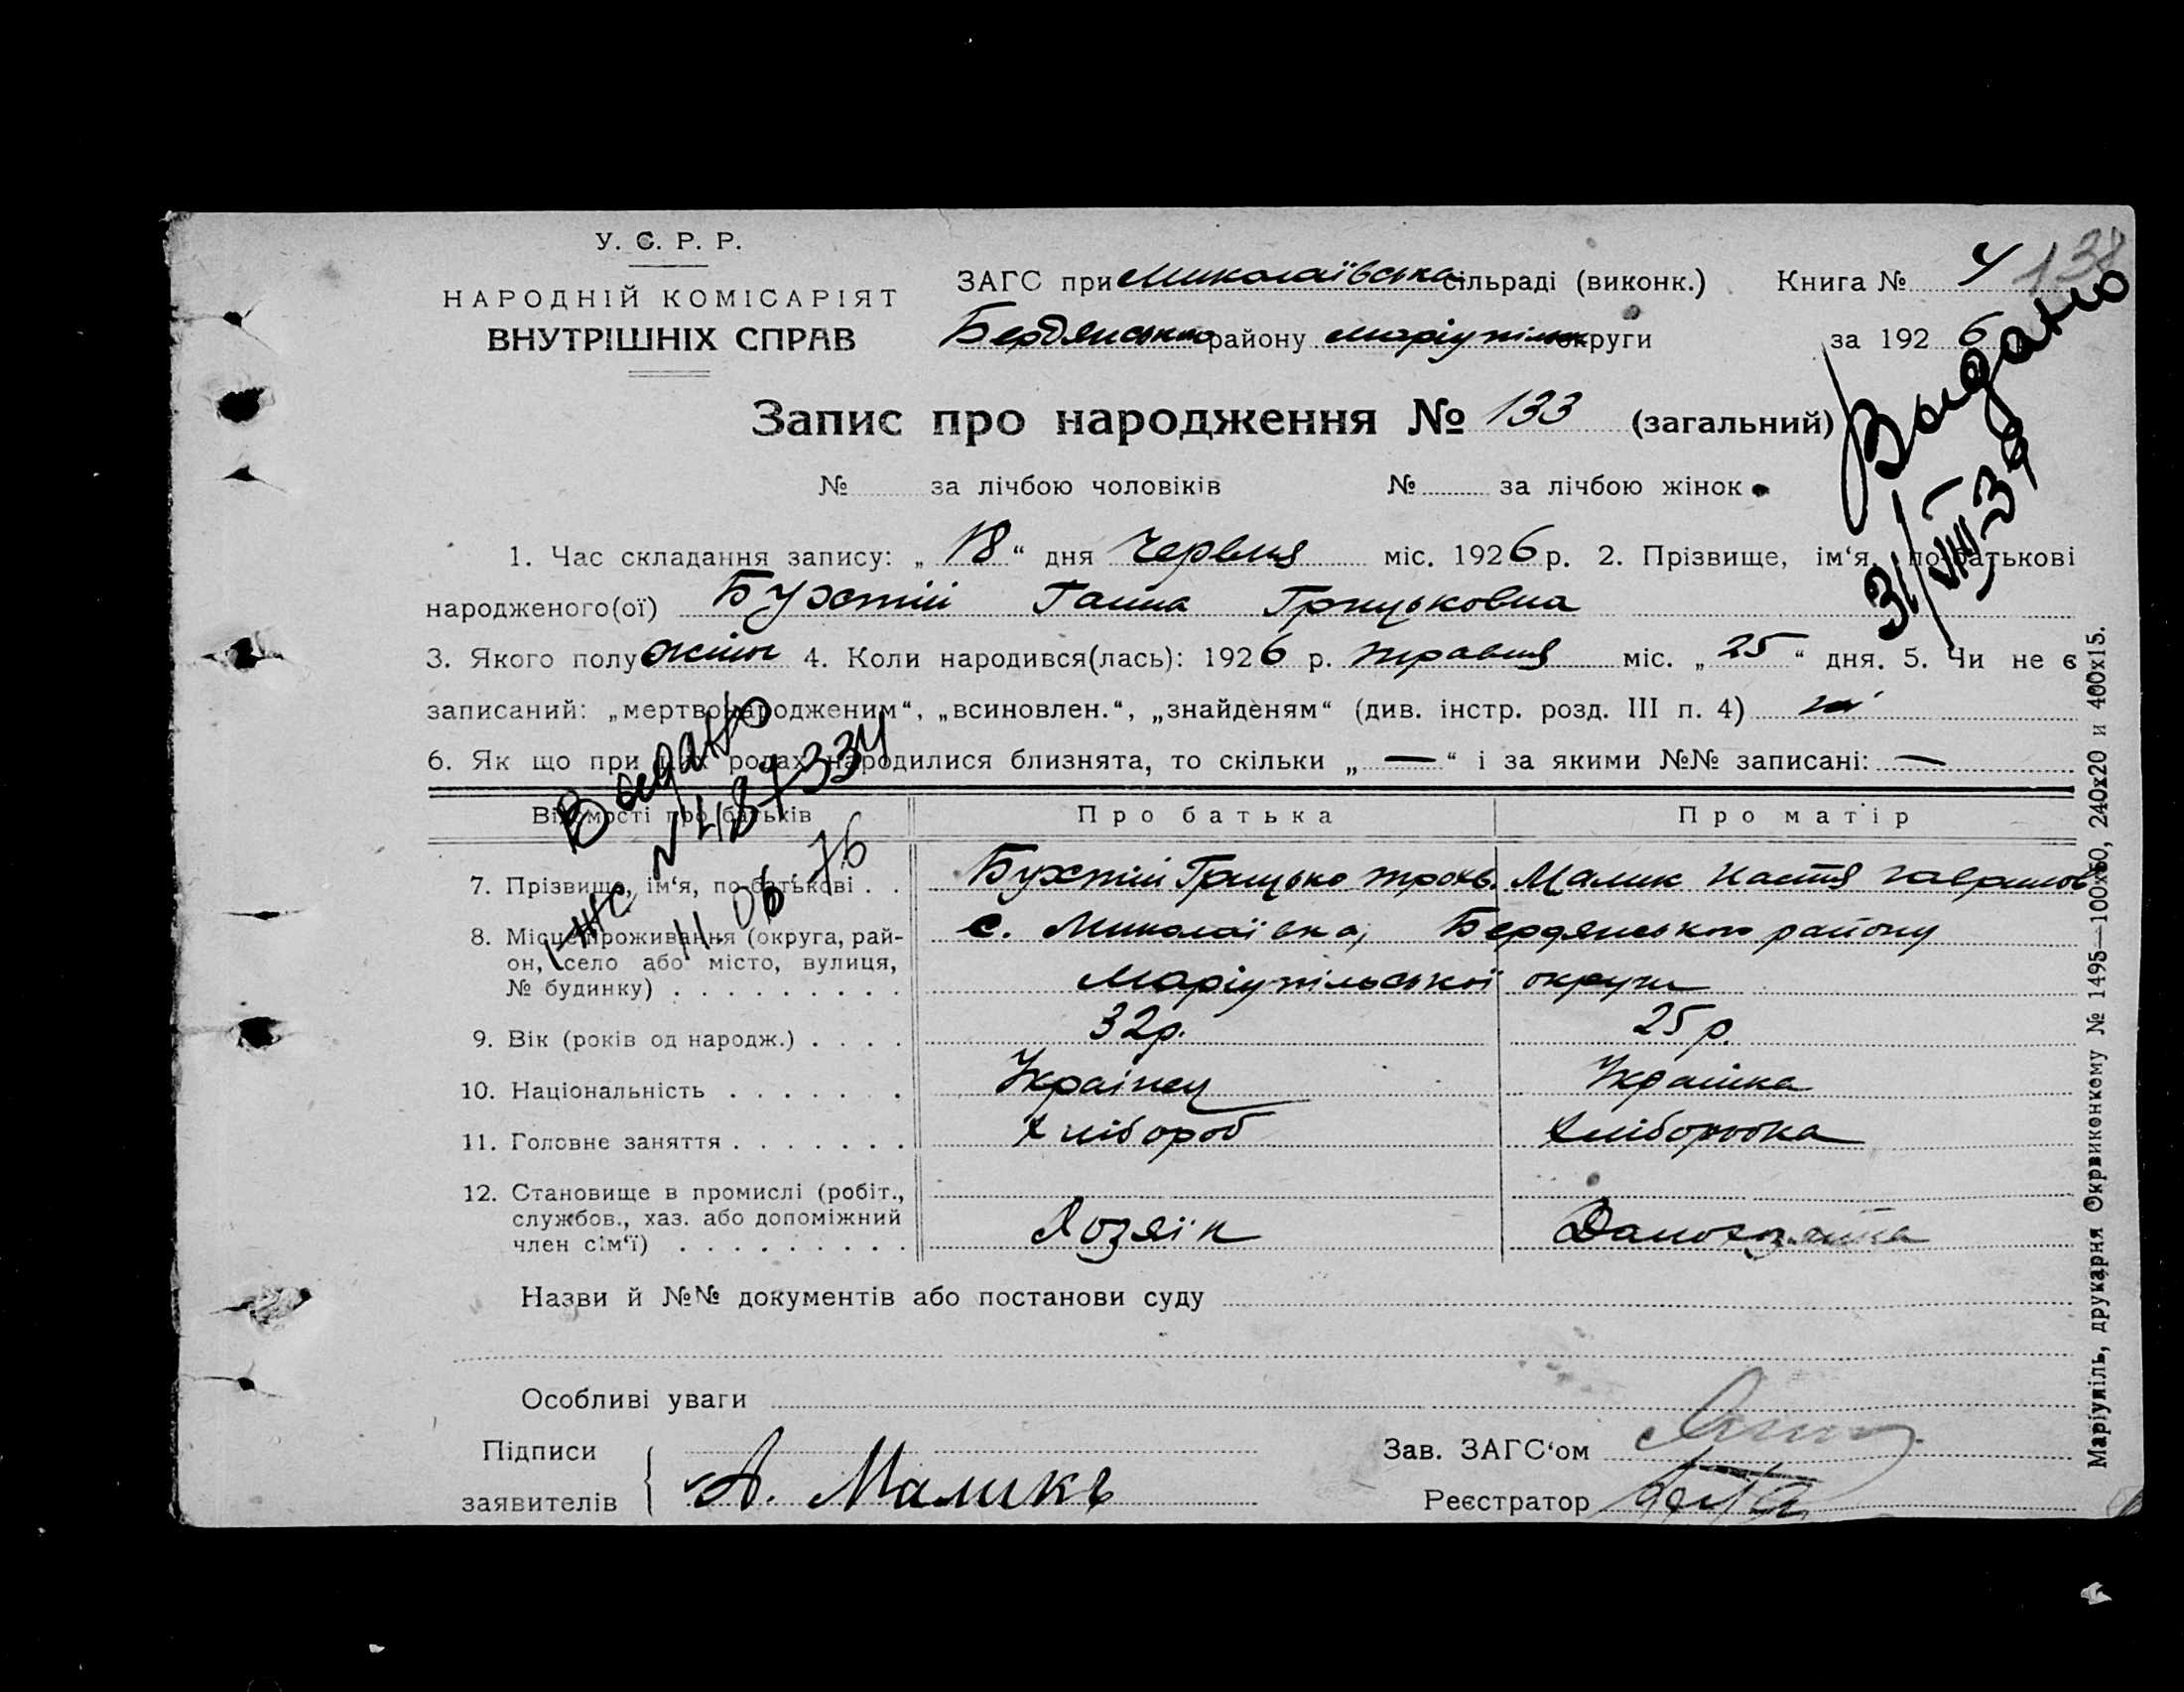 У. С. Р. Р.
НАРОДНІЙ КОМІСАРІЯТ
ВНУТРІШНІХ СПРАВ
ЗАГС при Миколаївська сільраді (виконк.) Книга № 4 138
Бердянського району Маріупільск округи за 1926
Видано
31/VIII 39
Запис про народження № 133 (загальний)
№ за лічбою чоловіків № за лічбою жінок
1. Час складання запису: „18“ дня Червня міс. 1926 р. 2. Прізвище, ім‘я, по-батькові
народженого(ої) Бухтій Ганна Грицьковна
3. Якого полу жіноч 4. Коли народився(лась): 1926 р. травня міс. „25“ дня. 5. Чи не є
записаний: „мертвонародженим“, „всиновлен.“, „знайденям“ (див. інстр. розд. III п. 4) ні
6. Як що при цих родах народилися близнята, то скільки „—“ і за якими №№ записані: —
Видано
I-ЖС № 487334
11.06.76
Відомості про батьків Про батька Про матір
7. Прізвище, ім‘я, по-батькові . . Бухтій Грицько Трохв. Малик Настя Гаврилов
8. Місце проживання (округа, рай- с. Миколаївка, Бердянського району
он, село або місто, вулиця, Маріупільської округи
№ будинку) . . . . . . . . .
9. Вік (років од народж.) . . . . 32р. 25 р.
10. Національність . . . . . . . Українец Українка
11. Головне заняття . . . . . . . Хлібороб Хліборобка
12. Становище в промислі (робіт.,
службов., хаз. або допоміжний Хозяїн
член сім‘ї) . . . . . . . . .
Назви й №№ документів або постанови суду
Особливі уваги
Підписи
заявителів А. Маликъ
Зав. ЗАГС‘ом
Реєстратор
Маріупіль, друкарня Окрвиконкому № 1495—100х60, 240х20 и 400х15.